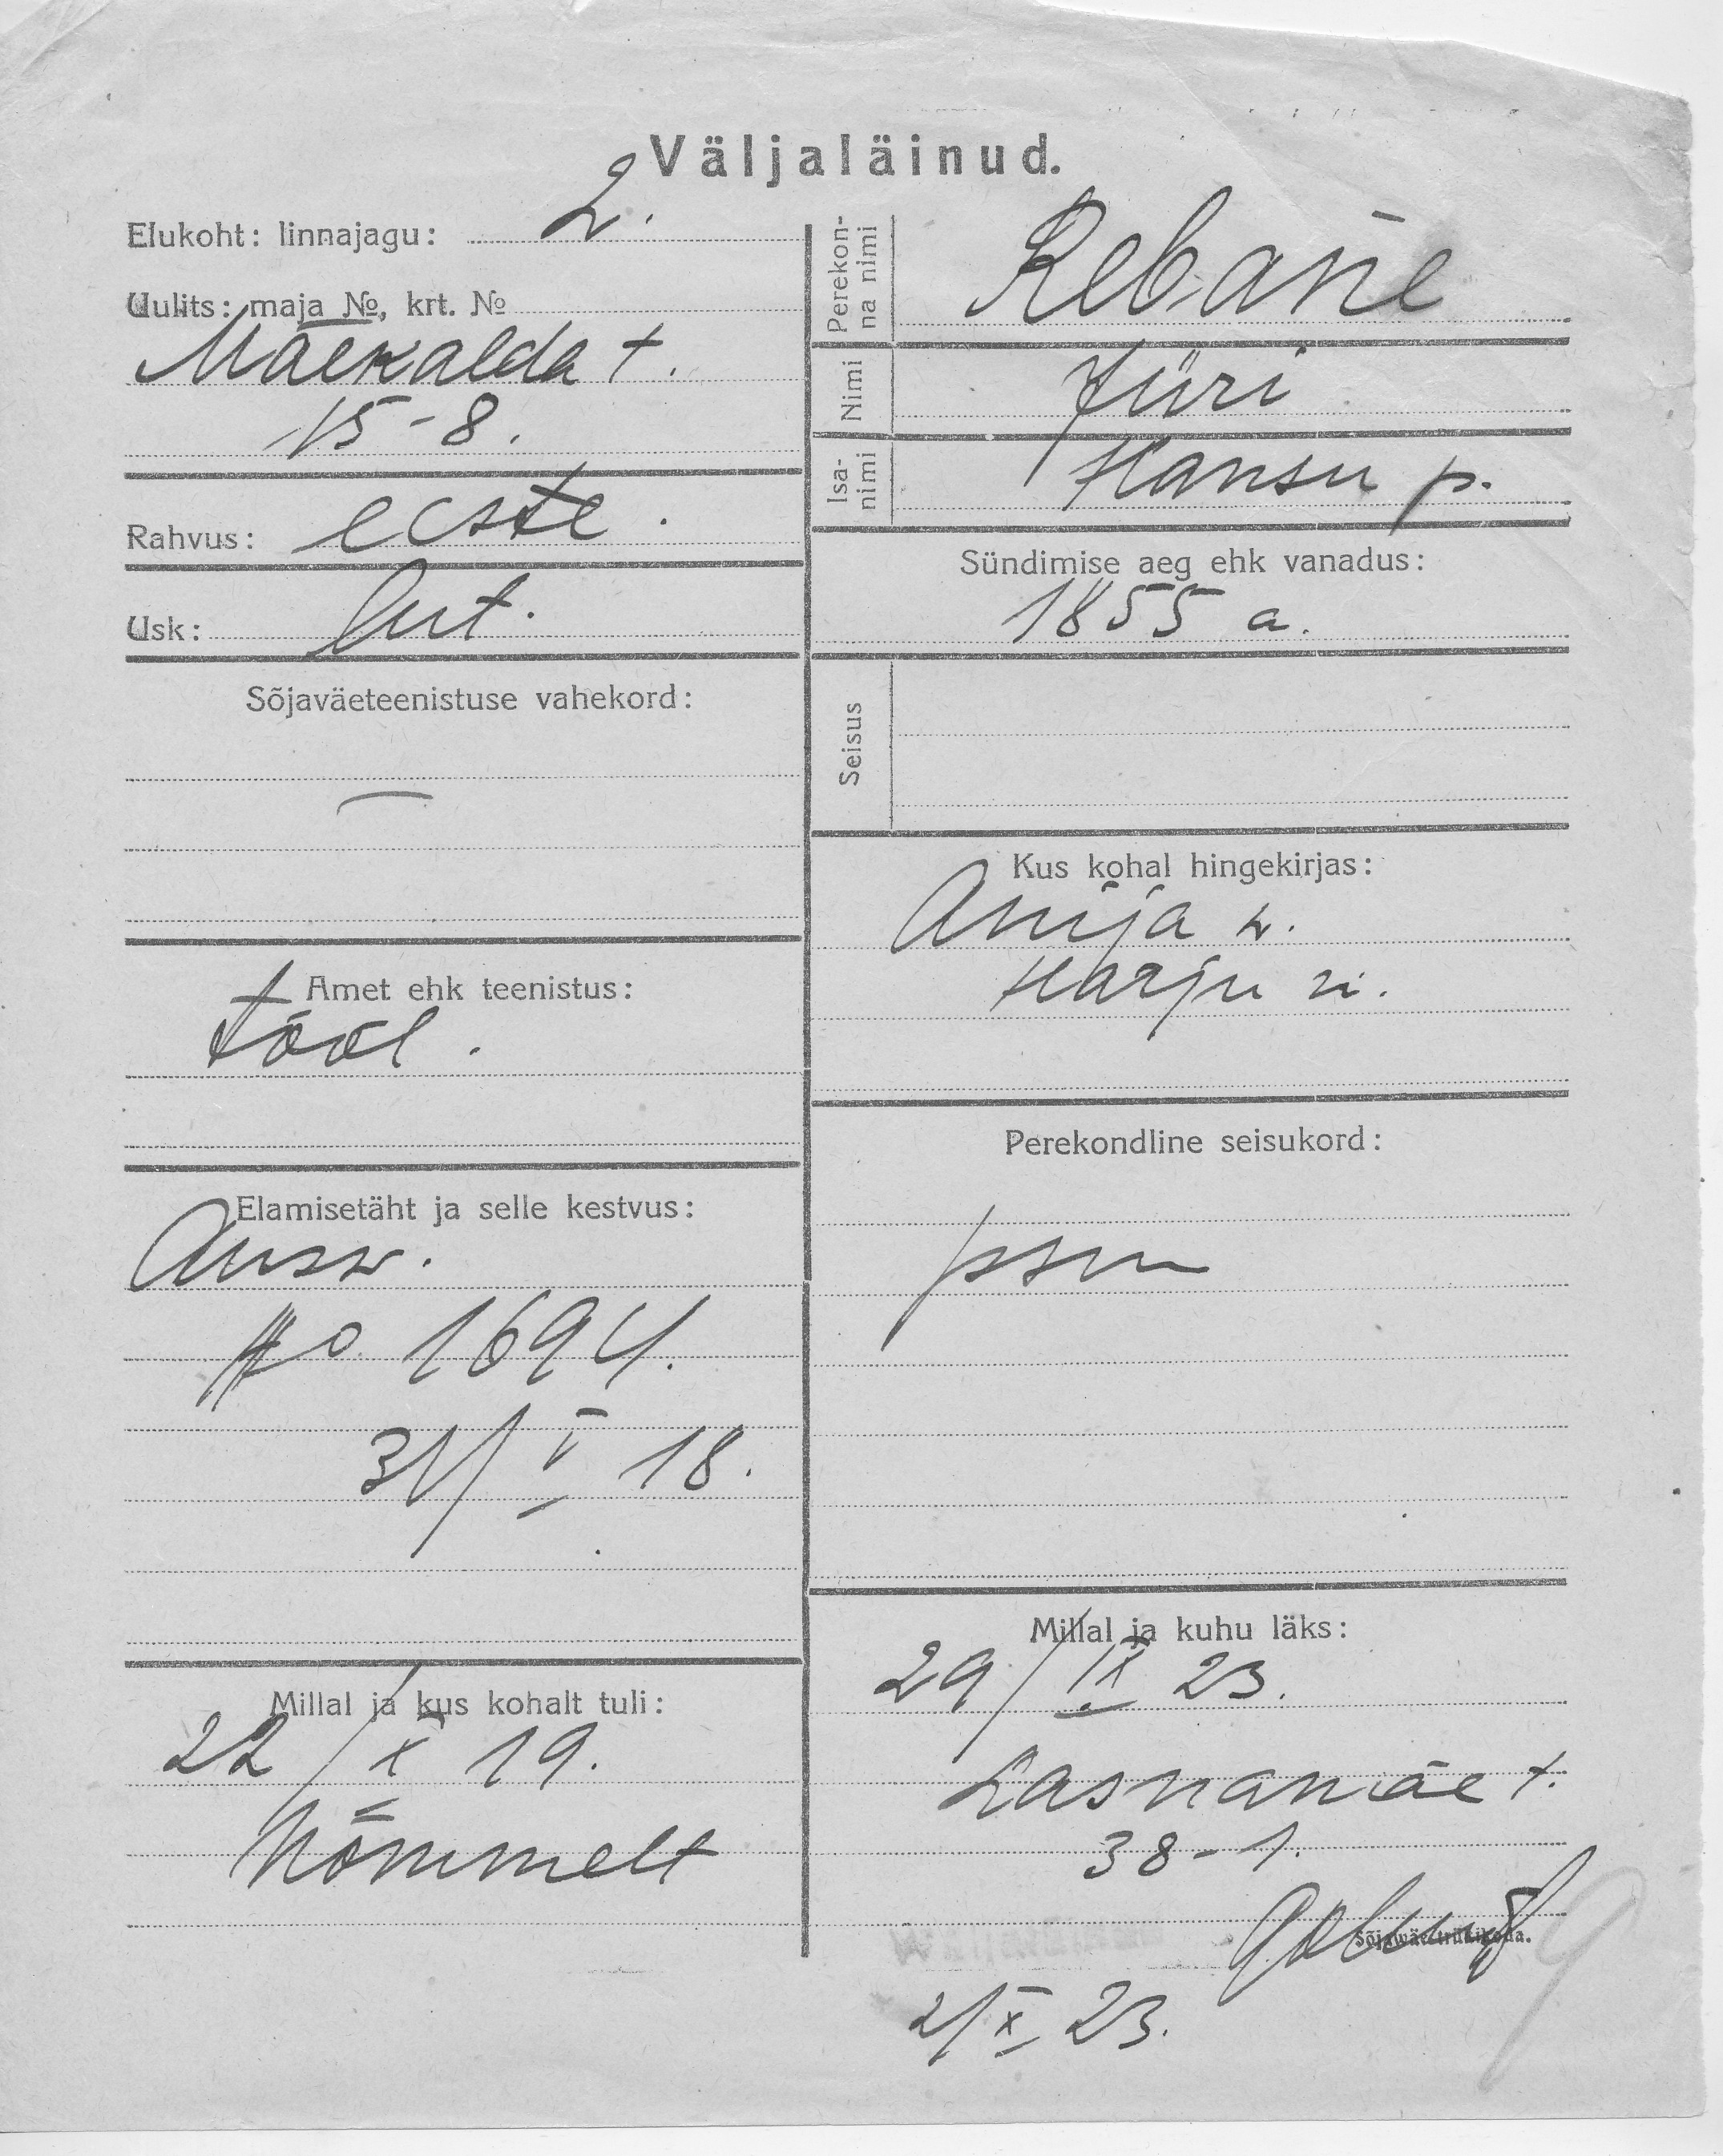 Väljaläinud.
Elukoht: linnajagu: 2.
Uulits: maja №, krt. №
Mäekalda t.
15-8.
Rahvus: eeste.
Usk: lut.
Sõjaväeteenistuse vahekord:
—
Amet ehk teenistus:
tööl.
Elamisetäht ja selle kestvus:
Ausw.
№ 1694.
31/V 18.
Millal ja kus kohalt tuli:
22/X 19.
Nõmmelt
Perekonna nimi
Rebane
Nimi
Jüri
Isanimi
Hansu p.
Sündimise aeg ehk vanadus:
1855 a.
Seisus
Kus kohal hingekirjas:
Anija w.
Harju m.
Perekondline seisukord:
Millal ja kuhu läks:
29/IX 23.
Lasnamäe t.
38-1.
Sõjawäe trükikoda.
2/X 23.